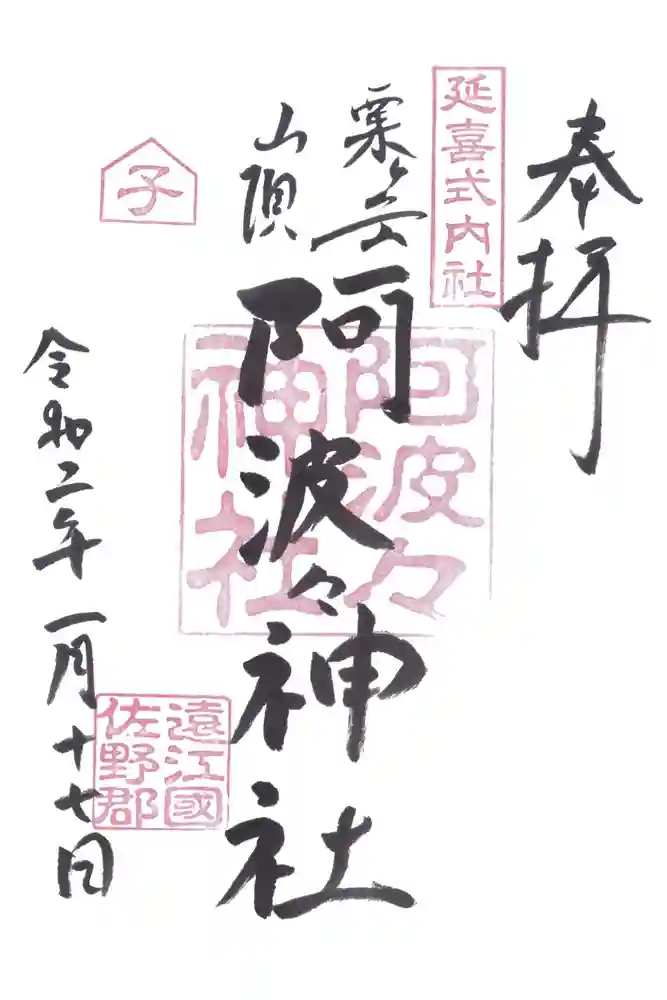 奉拝
延喜式内社
粟ヶ岳
山頂
阿波々神社
阿波々
神社
子
遠江國
佐野郡
令和二年一月十七日